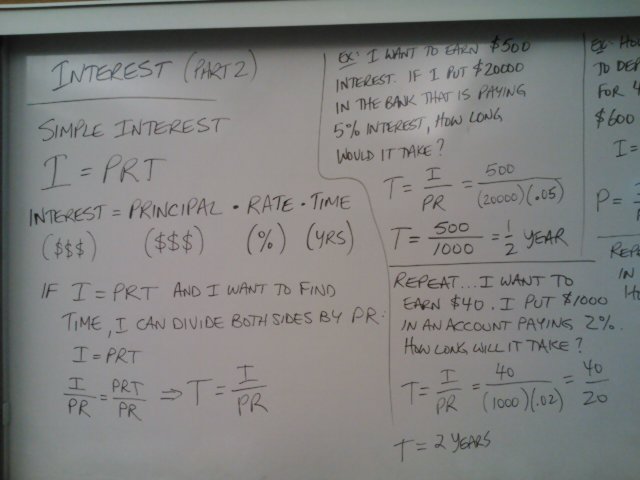 INTEREST (PART 2)
SIMPLE INTEREST
I = PRT
INTEREST = PRINCIPAL • RATE • TIME
($$$) ($$$) (%) (YRS)
IF I = PRT AND I WANT TO FIND
TIME, I CAN DIVIDE BOTH SIDES BY PR:
I = PRT
I/PR = PRT/PR ⇒ T = I/PR
EX: I WANT TO EARN $500
INTEREST. IF I PUT $20000
IN THE BANK THAT IS PAYING
5% INTEREST, HOW LONG
WOULD IT TAKE?
T = I/PR = 500/(20000)(.05)
T = 500/1000 = 1/2 YEAR
REPEAT... I WANT TO
EARN $40. I PUT $1000
IN AN ACCOUNT PAYING 2%.
HOW LONG WILL IT TAKE?
T = I/PR = 40/(1000)(.02) = 40/20
T = 2 YEARS
EX:
TO
FOR 4
$600
I =
P =
IN